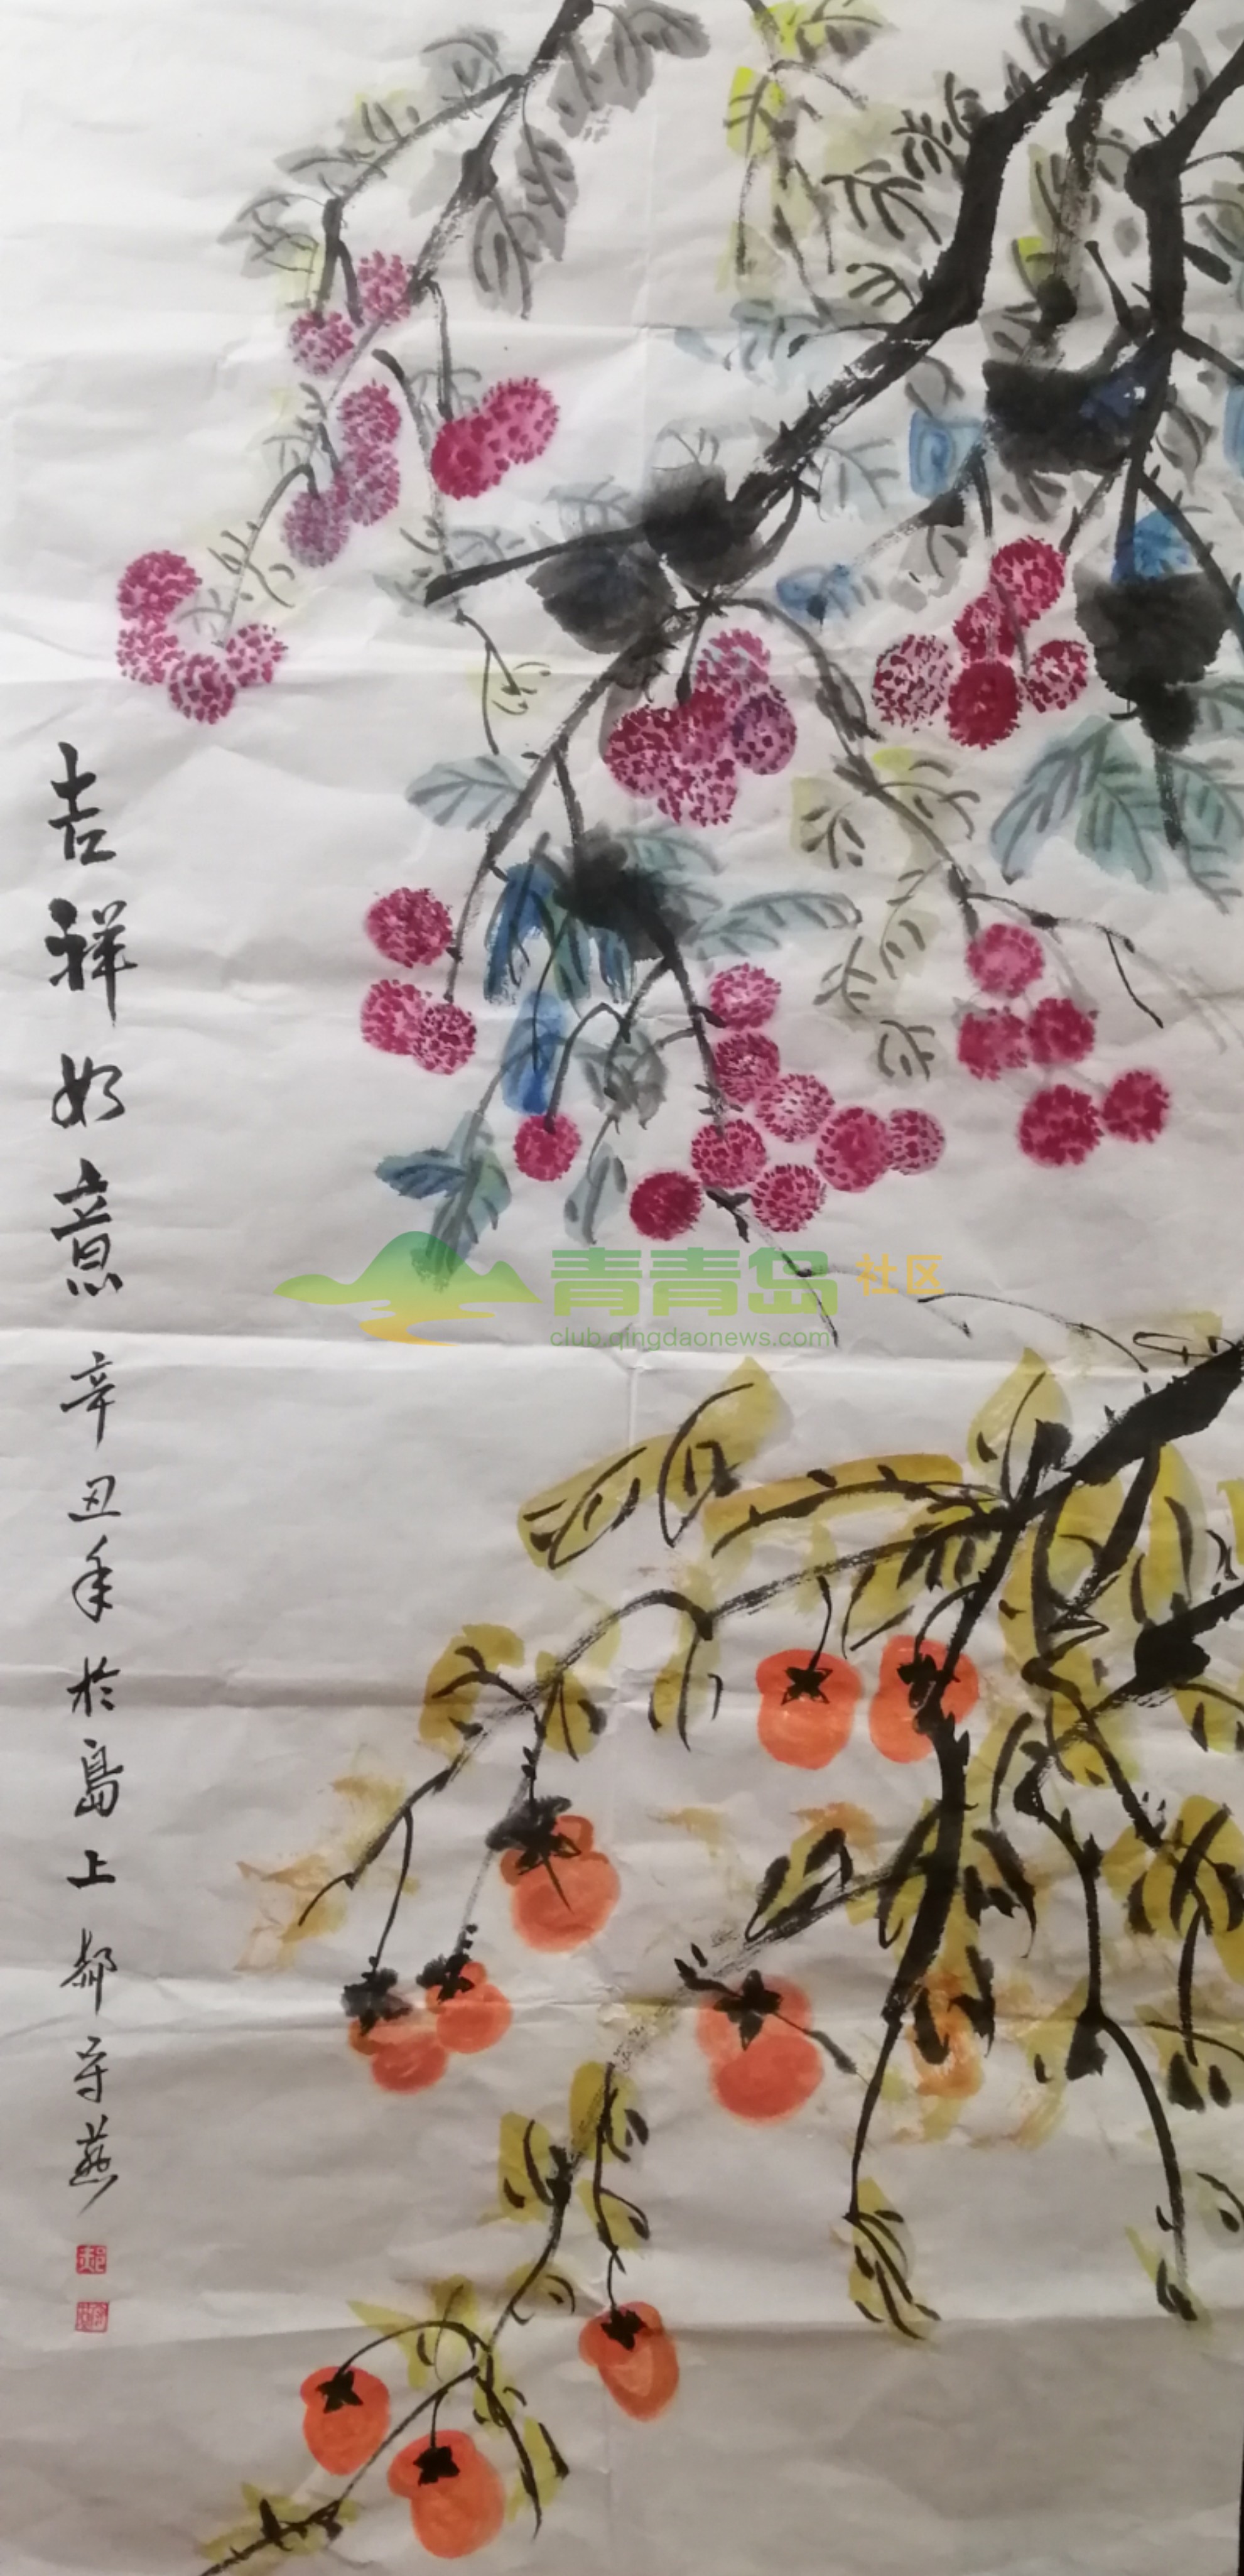 吉祥如意 辛丑年於島上郝守燕
青青岛社区
club.qingdaonews.com